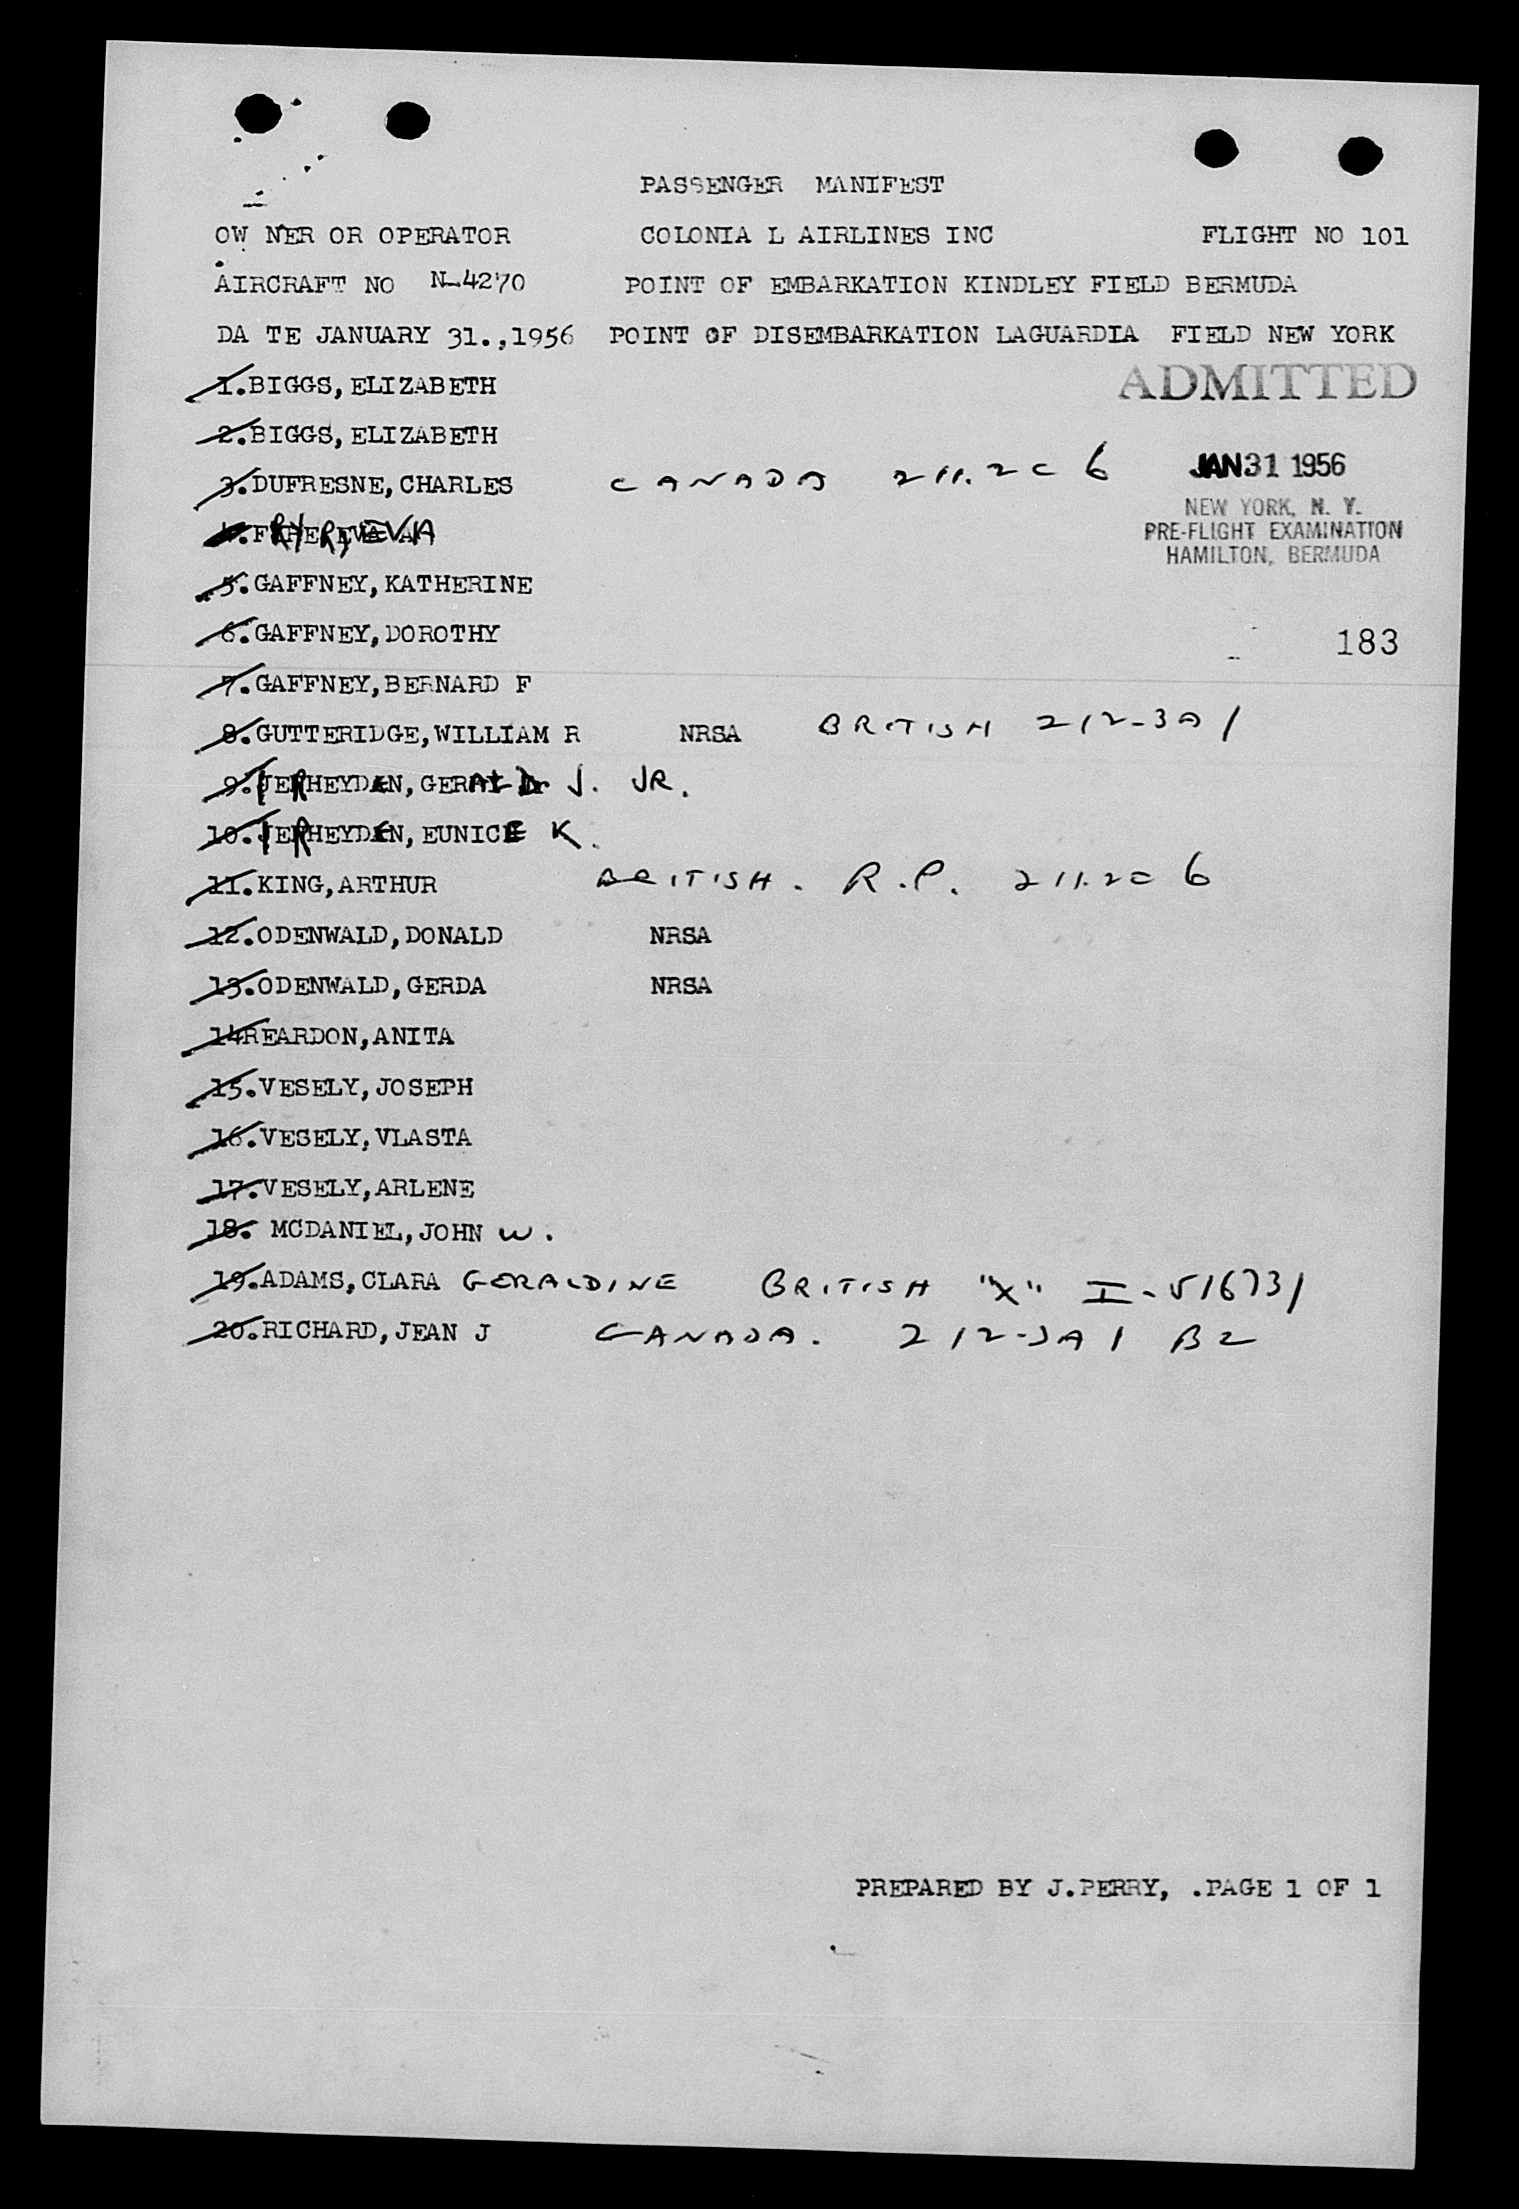 PASSENGER MANIFEST
OW NER OR OPERATOR COLONIA L AIRLINES INC FLIGHT NO 101
AIRCRAFT NO N-4270 POINT OF EMBARKATION KINDLEY FIELD BERMUDA
DA TE JANUARY 31.,1956 POINT OF DISEMBARKATION LAGUARDIA FIELD NEW YORK
1.BIGGS,ELIZABETH ADMITTED
2.BIGGS,ELIZABETH
JAN 31 1956
3.DUFRESNE,CHARLES CANADA 211.2C6
NEW YORK, N. Y.
4. EVA PRE-FLIGHT EXAMINATION
HAMILTON, BERMUDA
5.GAFFNEY,KATHERINE
6.GAFFNEY,DOROTHY 183
7.GAFFNEY,BERNARD F
8.GUTTERIDGE,WILLIAM R NRSA BRITISH 212-3A1
9. GERALD J. JR.
10. EUNICE K.
11.KING,ARTHUR BRITISH. R.P. 211.2C6
12.ODENWALD,DONALD NRSA
13.ODENWALD,GERDA NRSA
14REARDON,ANITA
15.VESELY,JOSEPH
16.VESELY,VLASTA
17.VESELY,ARLENE
18. MCDANIEL,JOHN W.
19.ADAMS,CLARA GERALDINE BRITISH "X" I-516731
20.RICHARD,JEAN J CANADA. 212-3A1 B2
PREPARED BY J.PERRY, .PAGE 1 OF 1